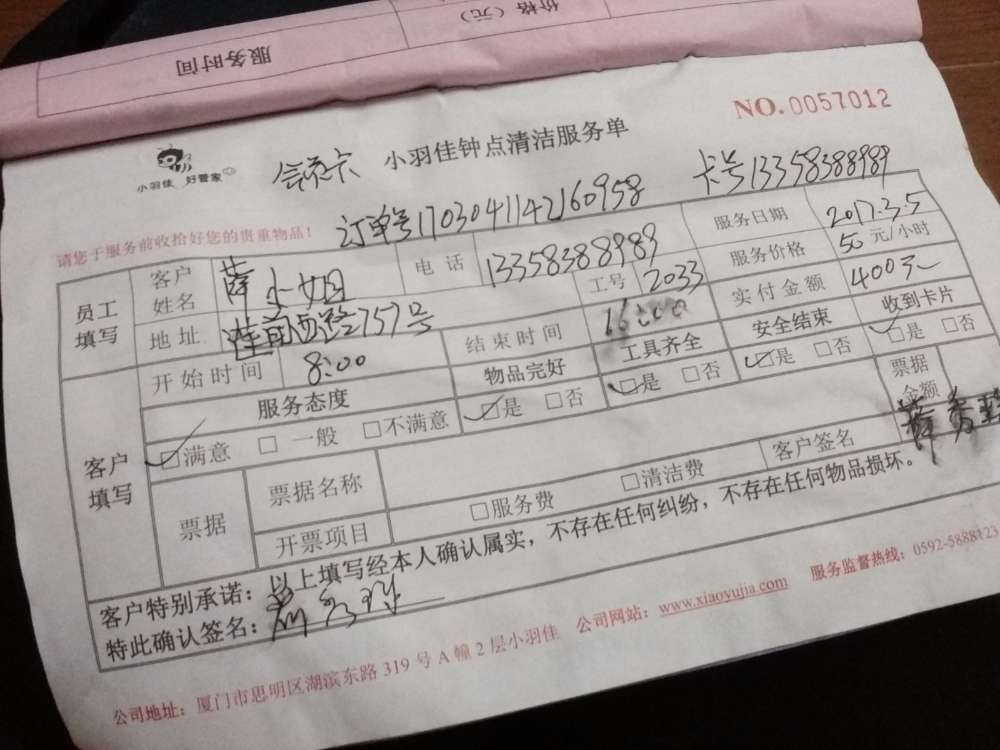 价格（元）
服务时间
NO.0057012
小羽佳 好管家
小羽佳钟点清洁服务单
订单号1703041142160958 卡号13358388989
请您于服务前收拾好您的贵重物品！
员工填写 客户姓名 薛小姐 电话 13358388989 服务日期 2017.3.5
地址 莲前西路2757号 工号 2033 服务价格 50元/小时
开始时间 8:00 结束时间 16:00 实付金额 400元
客户填写 服务态度 物品完好 工具齐全 安全结束 收到卡片
满意 一般 不满意 是 否 是 否 是 否 是 否
票据 票据名称 票据金额
开票项目 服务费 清洁费 客户签名
客户特别承诺：以上填写经本人确认属实，不存在任何纠纷，不存在任何物品损坏。
特此确认签名：
公司地址：厦门市思明区湖滨东路319号A幢2层小羽佳 公司网站：www.xiaoyujia.com 服务监督热线：0592-5888123